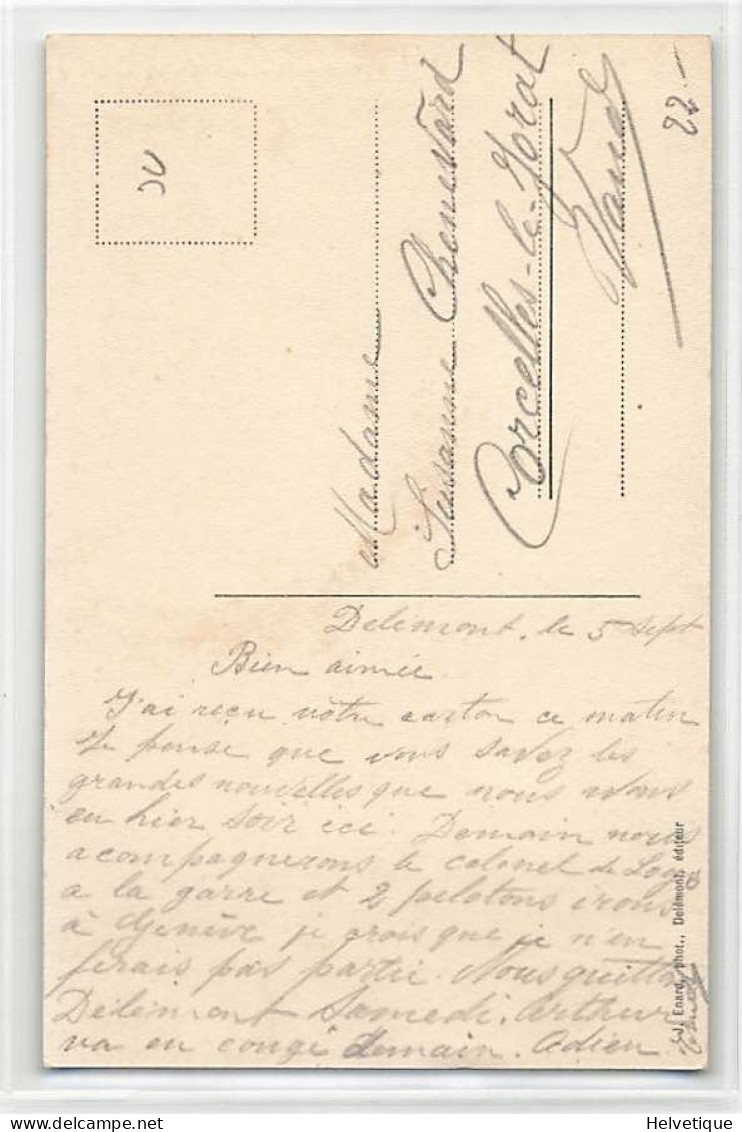 JU
22.-
Madame
Susanne Chenevard
Corcelles-le-Jorat
Vaud
Delémont, le 5 Sept
Bien aimée
J'ai reçu votre carton ce matin
Je pense que vous savez les
grandes nouvelles que nous avons
eu hier soir ici. Demain nous
acompagnerons le colonel de Loys
a la garre et 2 pelotons irons
à Genève je crois que je n'en
ferais pas partie. Nous quittons
Delémont Samedi. Arthur
va en congé demain. Adieu
J. Enard, phot., Delémont, éditeur
Helvetique